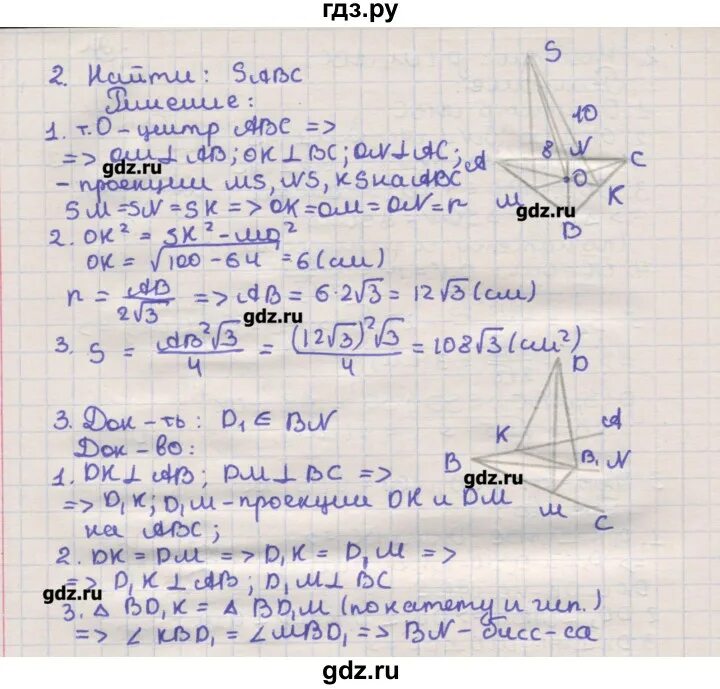 гдз.ру
2. Найти: SABC
Решение:
1. т.О - центр ABC =>
=> OM⊥AB; OK⊥BC; ON⊥AC;
- проекции MS, NS, KS на ABC
SM = SN = SK => OK = OM = ON = r
2. OK² = SK² - MO²
OK = √100 - 64 = 6 (см)
r = AB / 2√3 => AB = 6·2√3 = 12√3 (см)
3. S = AB²√3 / 4 = (12√3)²√3 / 4 = 108√3 (см²)
S
10
8
N
A
C
O
M
K
B
3. Док-ть: D₁ ∈ BN
Док-во:
1. DK⊥AB; DM⊥BC =>
=> D₁K; D₁M - проекции DK и DM
на ABC;
2. DK = DM => D₁K = D₁M =>
=> D₁K⊥AB; D₁M⊥BC
3. △BD₁K = △BD₁M (по катету и гип.)
=> ∠KBD₁ = ∠MBD₁ => BN - бисс-са
D
A
K
B
B₁
N
M
C
gdz.ru
gdz.ru
gdz.ru
gdz.ru
gdz.ru
gdz.ru